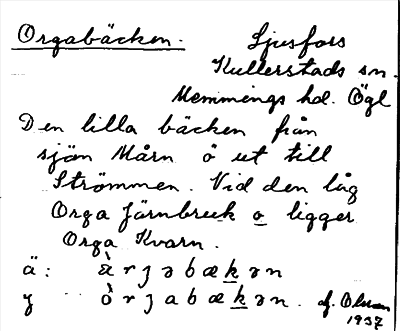 Orgabäcken. Ljusfors
Kullerstads sn.
Memmings hd. Ögl
Den lilla bäcken från
sjön Mårn ö ut till
Strömmen. Vid den låg
Orga Järnbruk o ligger
Orga Kvarn.
ä: àrȷəbækən
y òrȷabækən. af. Olsson
1937